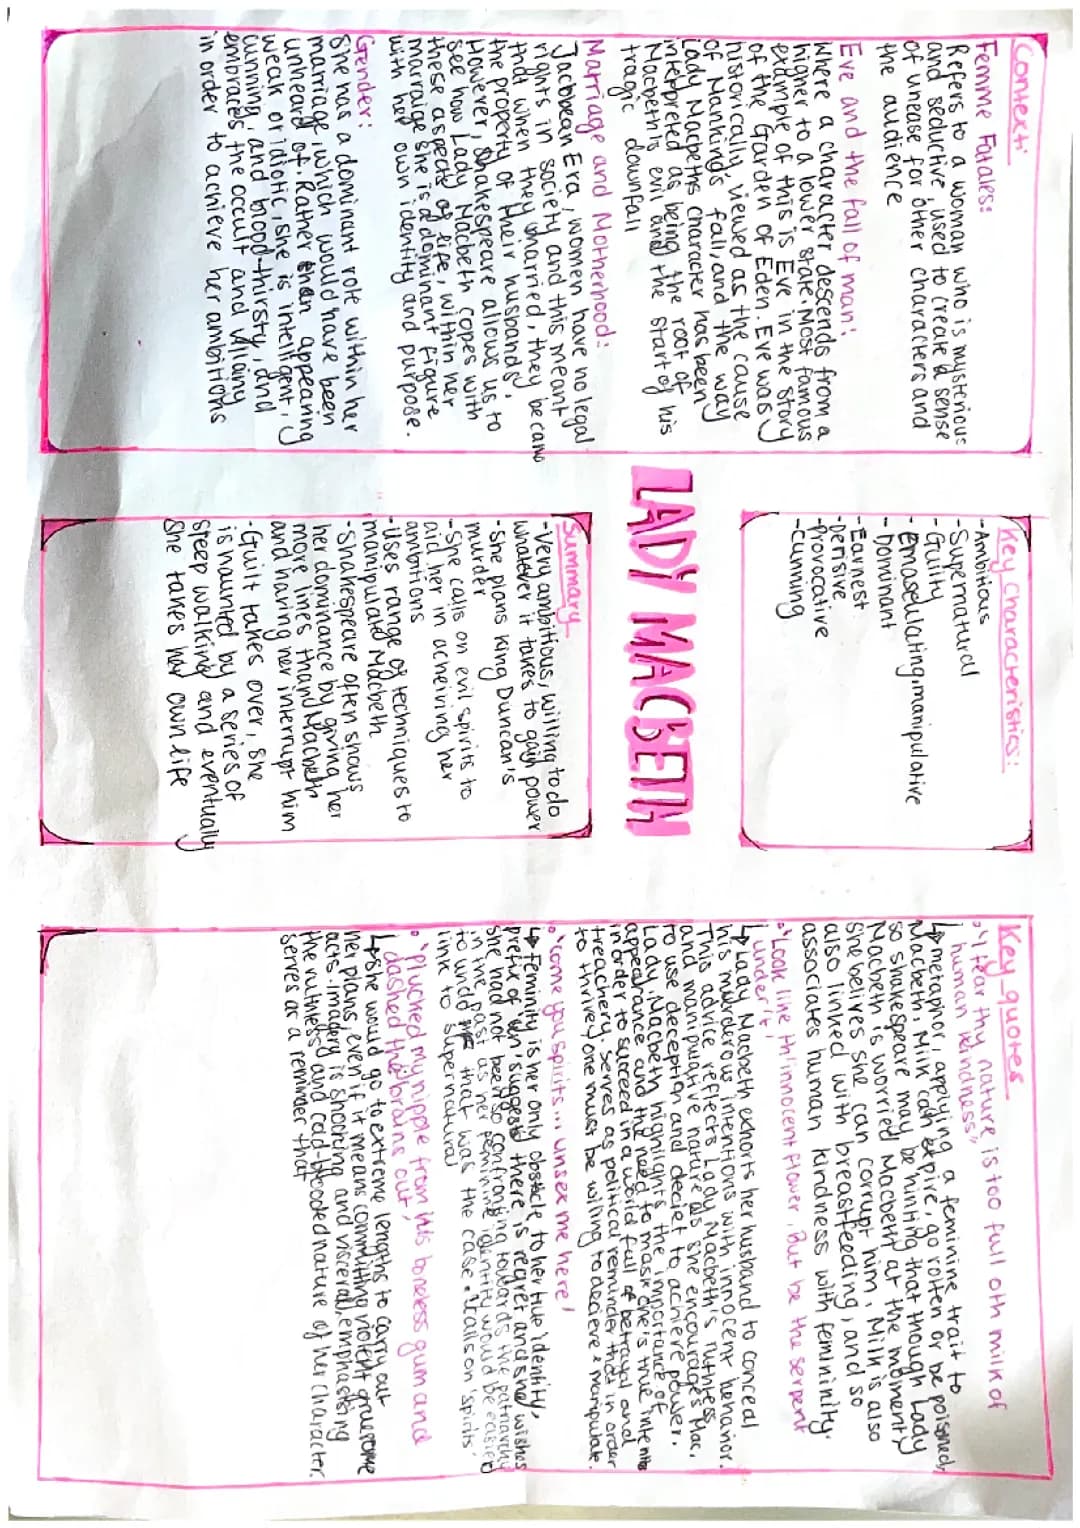 Context:
Femme Fatales:
Refers to a woman who is mysterious
and seductive, used to create a sense
of unease for other characters and
the audience
Eve and the fall of man:
Where a character descends from a
higher to a lower state. Most famous
example of this is Eve in the story
of the Garden of Eden. Eve was
historically viewed as the cause
of Mankind's fall, and the way
Lady Macbeths character has been
interpreted as being the root of
Macbeth's evil and the start of his
tragic downfall
Marriage and Motherhood:
Jacobean Era, women have no legal
rights in society and this meant
that when they married, they became
the property of their husbands'.
However, Shakespeare allows us to
see how Lady Macbeth copes with
these aspects of life, within her
marraige she is a dominant figure
with her own identity and purpose.
Gender:
She has a dominant role within her
marriage, which would have been
unheard of. Rather than appearing
weak or idiotic, she is intelligent,
cunning, and blood-thirsty, and
embraces the occult and villainy
in order to achieve her ambitions
Key Characteristics:
-Ambitious
-Supernatural
-Guilty
-Emasculating, manipulative
-Dominant
-Earnest
-Derisive
-Provocative
-Cunning
LADY MACBETH
Summary
-Very ambitious, willing to do
whatever it takes to gain power
-She plans King Duncan's
murder
-She calls on evil spirits to
aid her in acheiving her
ambitions
-Uses range of techniques to
manipulate Macbeth
-Shakespeare often shows
her dominance by giving her
more lines than Macbeth
and having her interrupt him
-Guilt takes over, she
is haunted by a series of
sleep walking and eventually
she takes her own life
Key quotes
"I fear thy nature is too full oth milk of
human kindness"
↳ metaphor, applying a feminine trait to
Macbeth. Milk can expire, go rotten or be poisoned,
so shakespeare may be hinting that though Lady
Macbeth is worried Macbeth at the moment,
she belives she can corrupt him. Milk is also
also linked with breastfeeding, and so
associates human kindness with femininity.
'Look like th'innocent flower, But be the serpent
under it'
↳ Lady Macbeth exhorts her husband to conceal
his murderous intentions with innocent behavior.
This advice reflects Lady Macbeth's ruthless
and manipulative nature as she encourages Mac,
to use deception and deciet to achieve power.
Lady Macbeth highlights the importance of
appearance and the need to mask one's true intents
in order to succeed in a world full of betrayal and
treachery. Serves as political reminder that in order
to thrive, one must be willing to decieve & manipulate.
'Come you spirits... unsex me here'
↳ Feminity is her only obstacle to her true identity,
prefix of 'un' suggests there is regret and she wishes
she had not been so confronting towards the patriarchy
in the past as her feminine identity would be easier
to undo if that was the case. Calls on 'spirits'
link to supernatural
'Plucked my nipple from his boneless gum and
dashed the brains out'
↳ She would go to extreme lengths to carry out
her plans, even if it means committing violent gruesome
acts. Imagery is shocking and visceral, emphasising
the ruthless and cold-blooded nature of her character.
serves as a reminder that